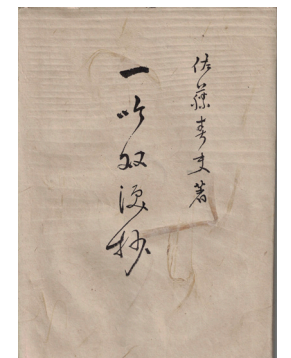 佐藤春夫著
一吟双涙抄